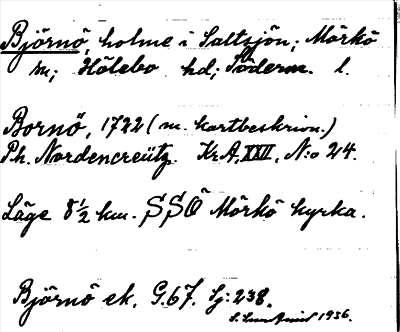 Björnö, holme i Saltsjön; Mörkö
sn; Hölebo hd; Söderm. l.
Bornö, 1722 (m. kartbeskrivn.)
Ph. Nordencreütz. KrA, XXII, N:o 24.
Läge 8½ km. SSÖ Mörkö kyrka.
Björnö ek. G.67. Sj:238.
1936.